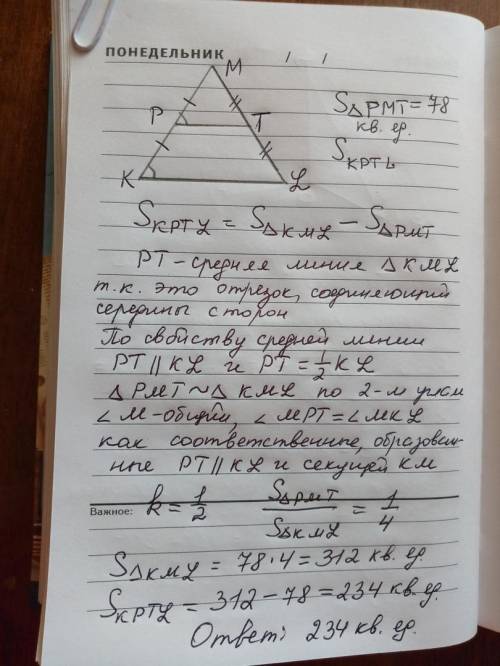 ПОНЕДЕЛЬНИК / /
M
P T
K L
S△PMT = 78
кв. ед.
SKPTL
SKPTL = S△KML − S△PMT
PT – средняя линия △KML
т.к. это отрезок, соединяющий
середины сторон
По свойству средней линии
PT || KL и PT = 1/2 KL
△PMT ~ △KML по 2-м углам
∠M – общий, ∠MPT = ∠MKL
как соответственные, образован-
ные PT || KL и секущей KM
Важное: k = 1/2 S△PMT / S△KML = 1/4
S△KML = 78·4 = 312 кв. ед.
SKPTL = 312 − 78 = 234 кв. ед.
Ответ: 234 кв. ед.